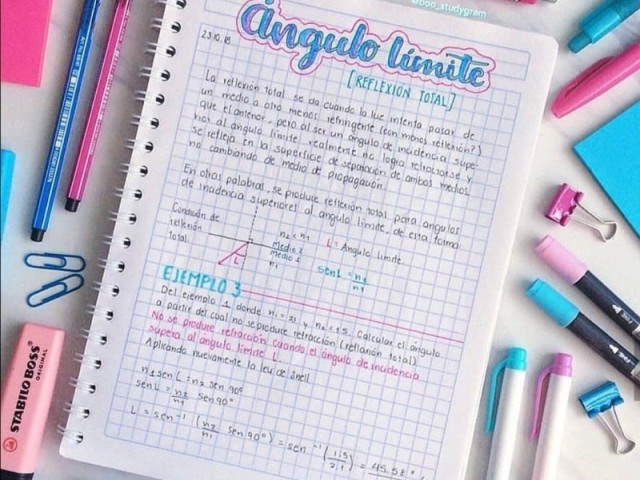 @boo_studygram
Ángulo límite
23.10.18
[REFLEXIÓN TOTAL]
La reflexión total se da cuando la luz intenta pasar de
un medio a otro menos refringente (con menos reflexión?)
que el anterior, pero al ser un ángulo de incidencia supe-
rior al ángulo límite realmente no logra refractarse y
se refleja en la superficie de separación de ambos medios
no cambiando de medio de propagación.
En otras palabras, se produce reflexión total para ángulos
de incidencia superiores al ángulo límite, de esta forma
Condición de
reflexión
total
n2 < n1
medio 2
medio 1
n1
L
L = Ángulo límite
sen L = n2
n1
EJEMPLO 3
Del ejemplo 1 donde n1 = 2,1 y n2 = 1.5. Calcular el ángulo
a partir del cual no se produce refracción (reflexión total)
No se produce refracción cuando el ángulo de incidencia
supera al ángulo límite L.
Aplicando nuevamente la ley de Snell
n1 sen L = n2 sen 90°
sen L = n2 sen 90°
n1
L = sen⁻¹ (n2 sen 90°) = sen⁻¹ (1,5) = 45.58°
n1 2,1
STABILO BOSS
ORIGINAL